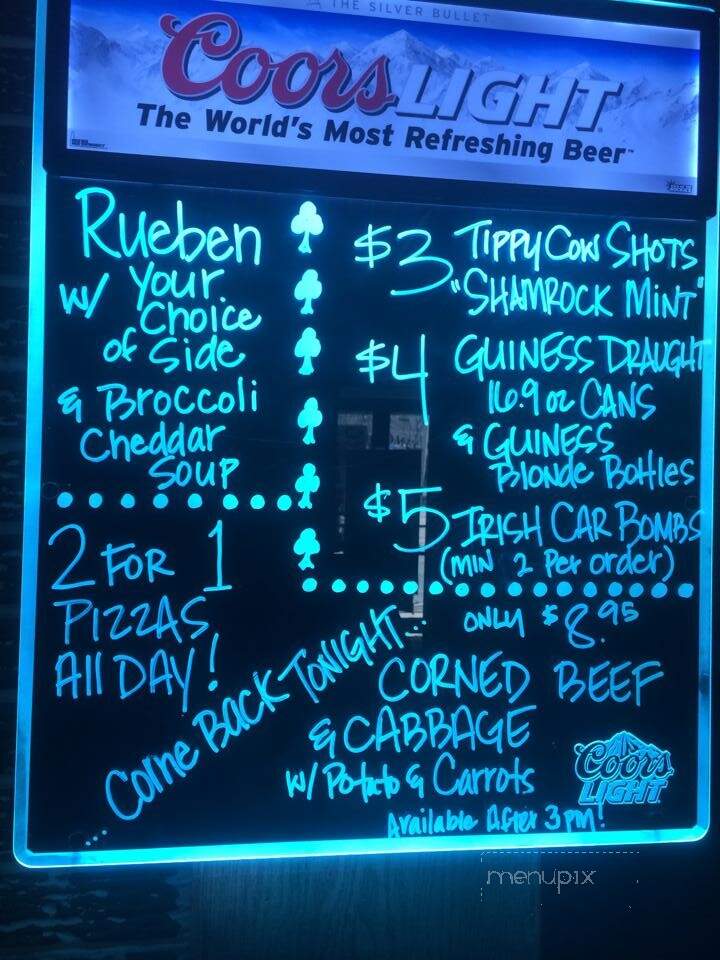 THE SILVER BULLET
Coors LIGHT
The World's Most Refreshing Beer
Rueben
w/ Your
Choice
of Side
& Broccoli
Cheddar
Soup
2 FOR 1
PIZZAS
All DAY!
$3 TIPPY COW SHOTS
"SHAMROCK MINT"
$4 GUINESS DRAUGHT
16.9 oz CANS
& GUINESS
Blonde Bottles
$5 IRISH CAR BOMBS
(MIN 2 Per order)
...Come BACK TONIGHT...
ONLY $8.95
CORNED BEEF
& CABBAGE
w/ Potato & Carrots
Available After 3pm!
Coors
LIGHT
menupix